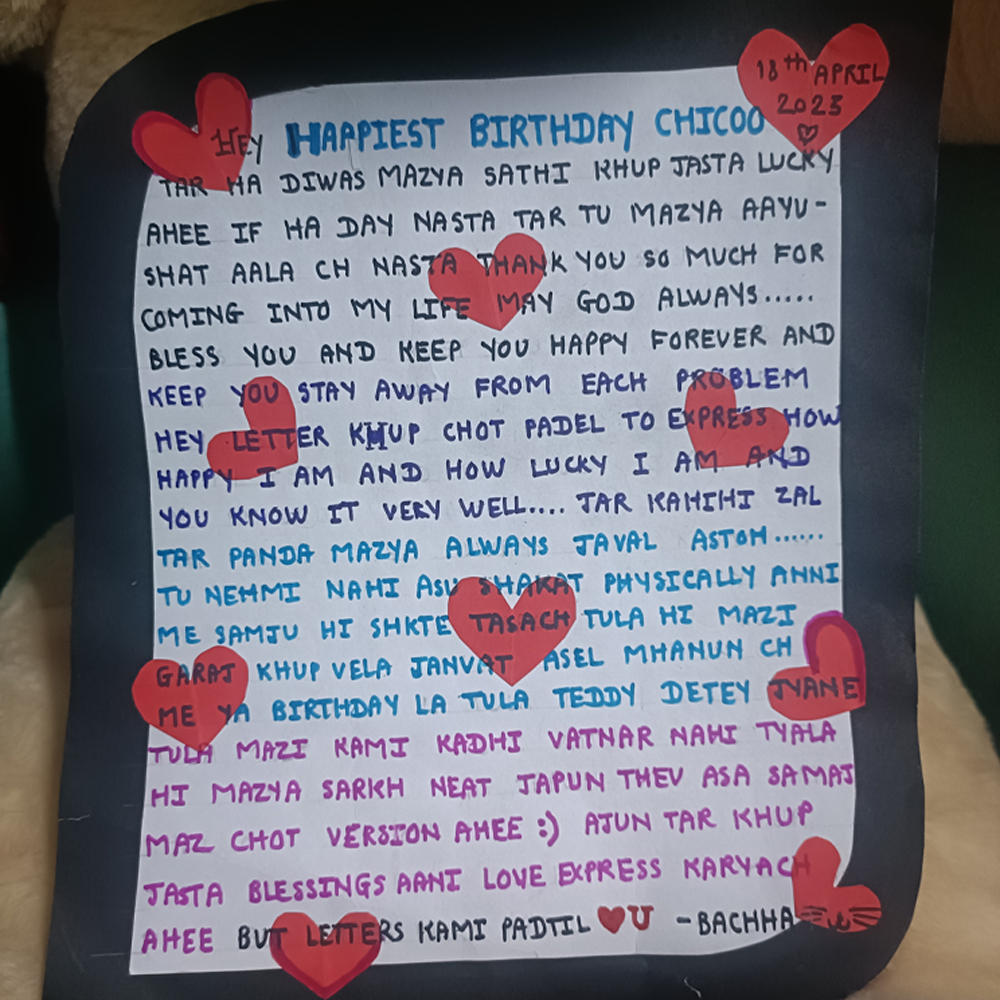 18th APRIL
2023
HEY HAAPIEST BIRTHDAY CHICOO
TAR HA DIWAS MAZYA SATHI KHUP JASTA LUCKY
AHEE IF HA DAY NASTA TAR TU MAZYA AAYU-
SHAT AALA CH NASTA THANK YOU SO MUCH FOR
COMING INTO MY LIFE MAY GOD ALWAYS.....
BLESS YOU AND KEEP YOU HAPPY FOREVER AND
KEEP YOU STAY AWAY FROM EACH PROBLEM
HEY LETTER KHUP CHOT PADEL TO EXPRESS HOW
HAPPY I AM AND HOW LUCKY I AM AND
YOU KNOW IT VERY WELL.... JAR KAHIHI ZAL
TAR PANDA MAZYA ALWAYS JAVAL ASTOH......
TU NEHMI NAHI ASU SHAKAT PHYSICALLY ANNI
ME SAMJU HI SHKTE TASACH TULA HI MAZI
GARAJ KHUP VELA JANVAT ASEL MHANUN CH
ME YA BIRTHDAY LA TULA TEDDY DETEY JYANE
TULA MAZI KAMI KADHI VATNAR NAHI TYALA
HI MAZYA SARKH NEAT JAPUN THEV ASA SAMAJ
MAZ CHOT VERSION AHEE :) AJUN TAR KHUP
JASTA BLESSINGS AANI LOVE EXPRESS KARYACH
AHEE BUT LETTERS KAMI PADTIL ❤U -BACHHA